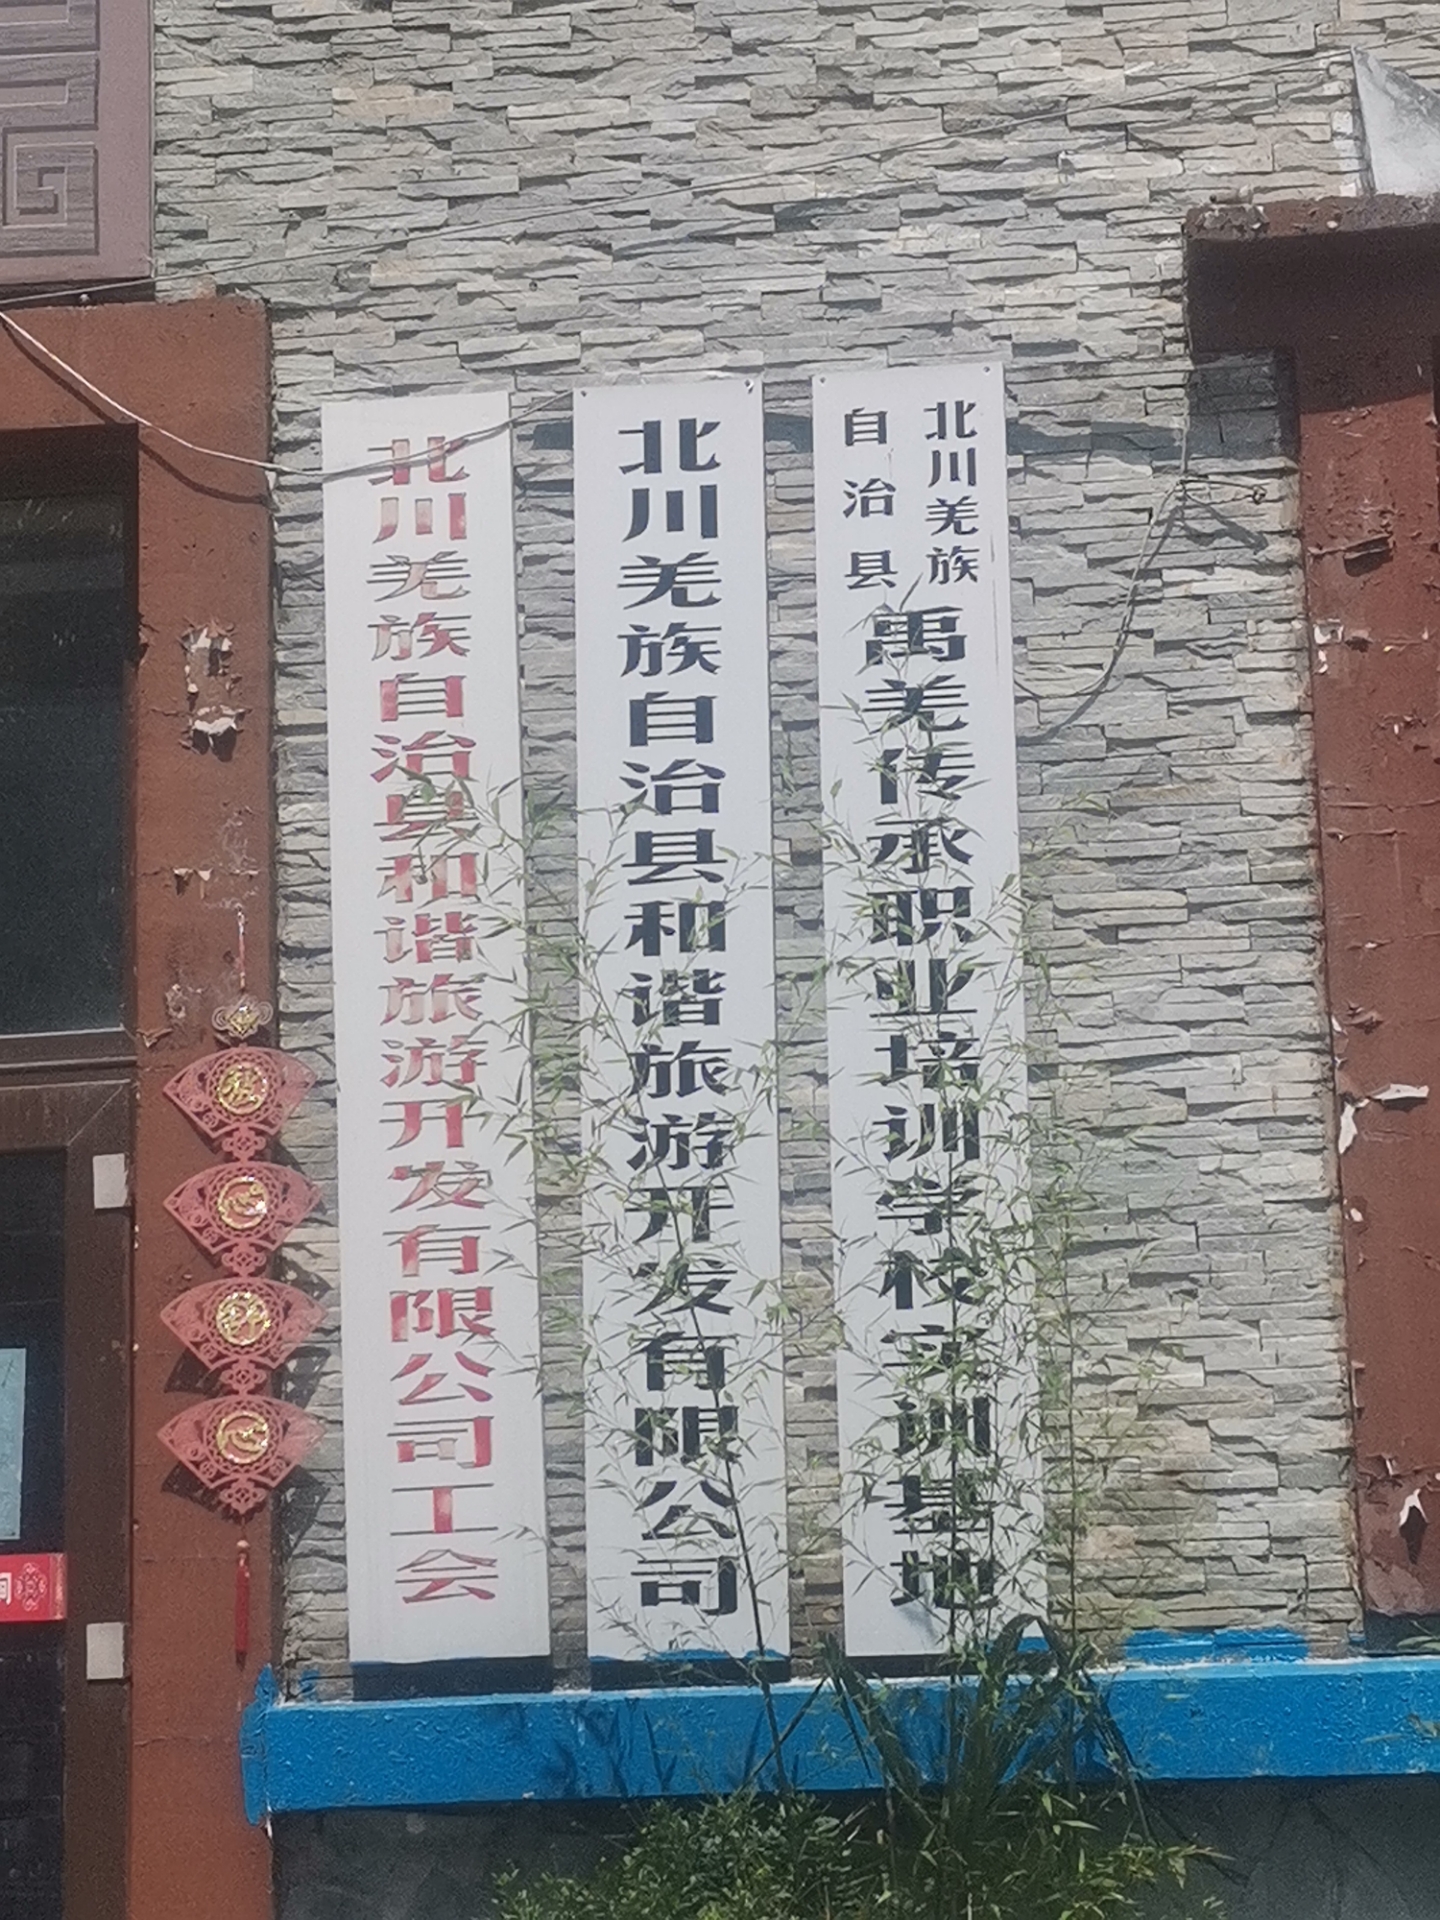 北川羌族自治县和谐旅游开发有限公司工会
北川羌族自治县和谐旅游开发有限公司
北川羌族
自治县
禹羌传承职业培训学校实训基地
心
想
心
司